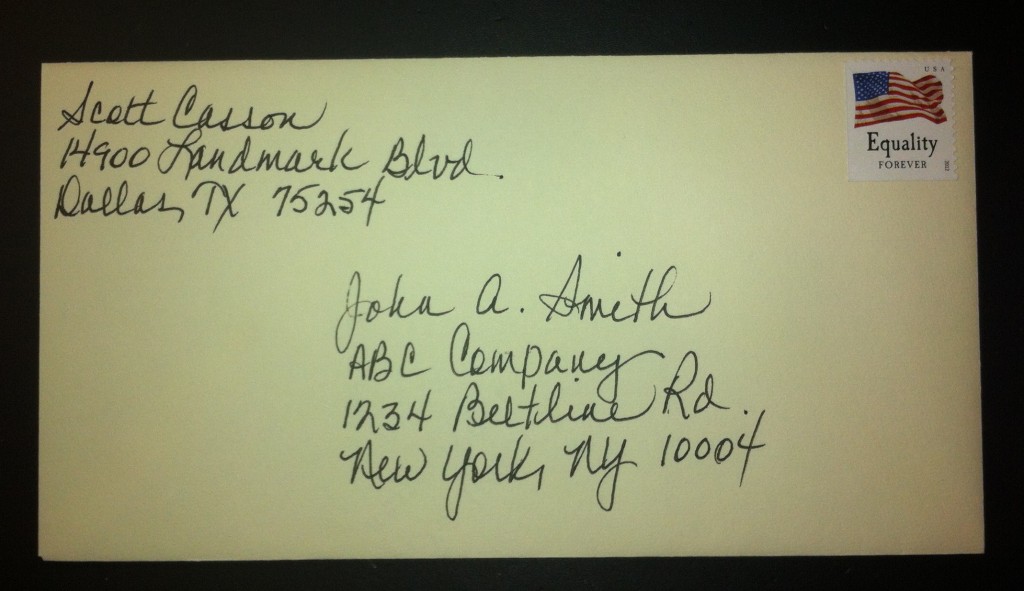 Scott Casson
14900 Landmark Blvd.
Dallas, TX 75254
USA
Equality
FOREVER
2012
John A. Smith
ABC Company
1234 Beltline Rd.
New York, NY 10004